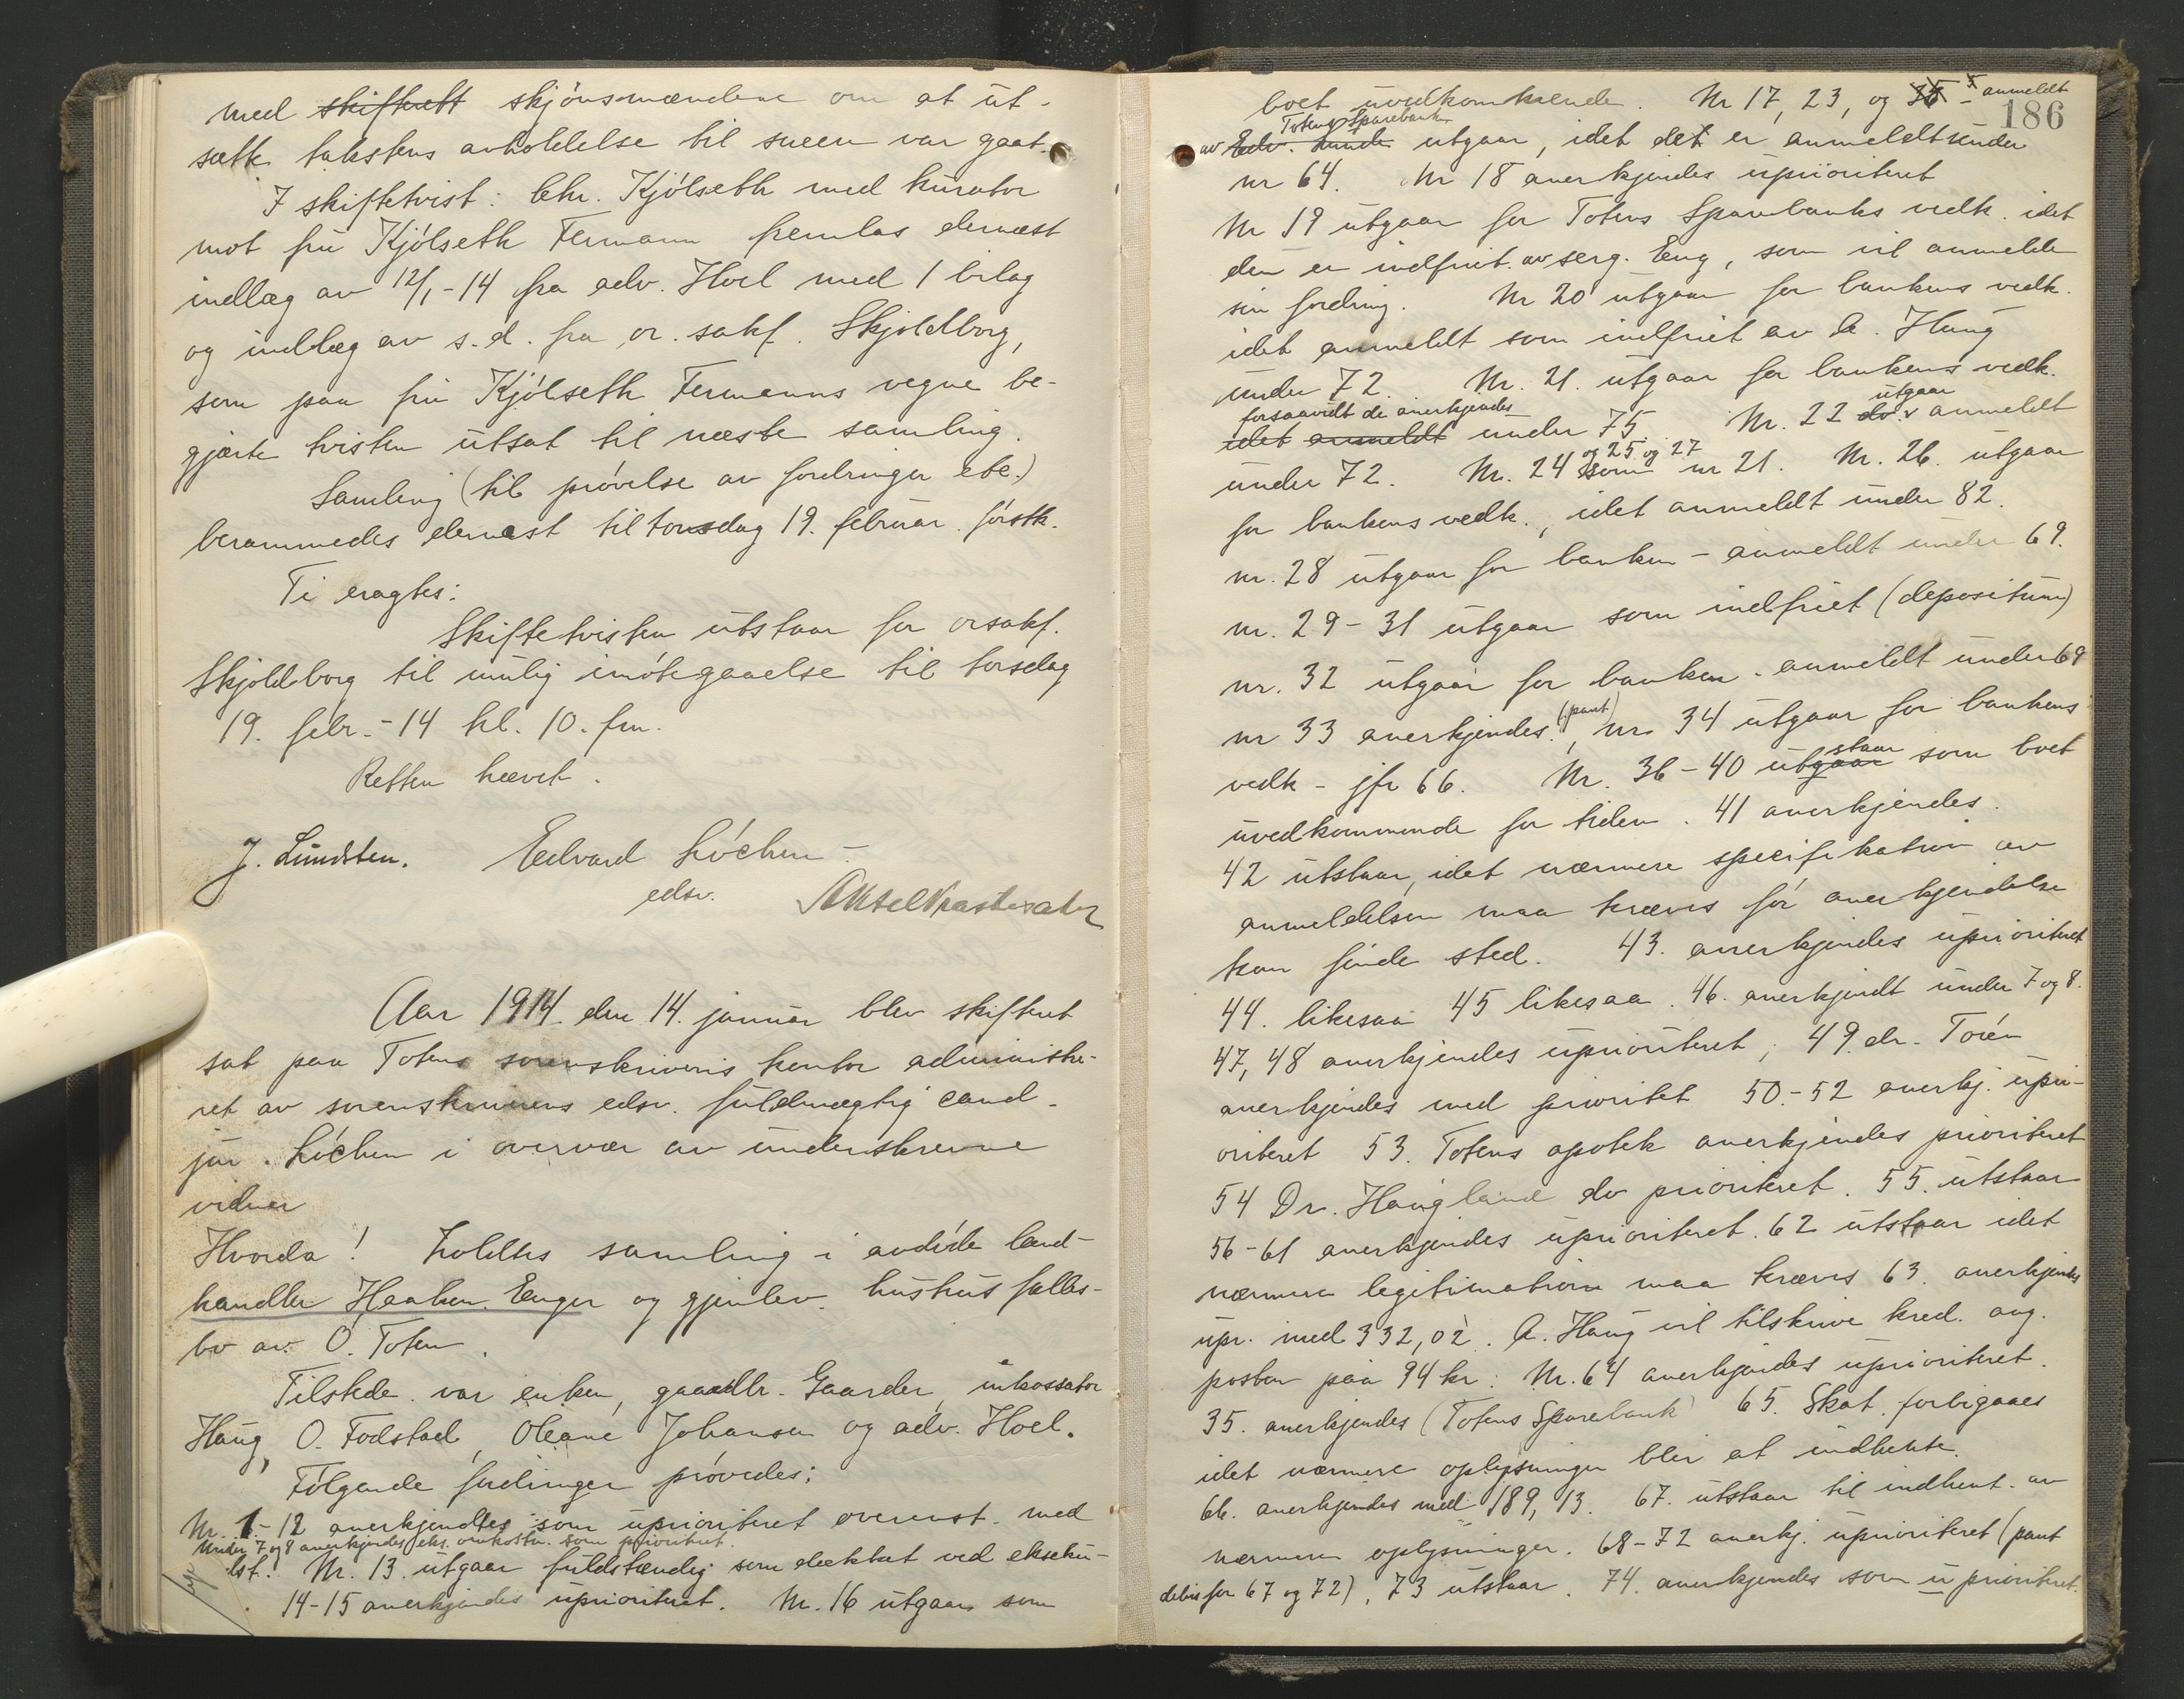 med skifteret skjønsmændene om at ut-
sætte takstens avholdelse til sneen var gaat.
I skiftetvist: Chr. Kjølseth med kurator
mot fru Kjølseth Fermann fremlas dernæst
indlæg av 12/1-14 fra adv. Hoel med 1 bilag
og indlæg av s.d. fra or. sakf. Skjoldborg,
som paa fru Kjølseth Fermanns vegne be-
gjærte tvisten utsat til næste samling.
Samling (til prøvelse av fordringer etc.)
berammedes dernæst til torsdag 19. februar førstk.
Ti eragtes:
Skiftetvisten utstaar for orsakf.
Skjoldborg til mulig imøtegaaelse til torsdag
19. febr. - 14 kl. 10. fm.
Retten hævet.
J. Lundsten. Edvard Løchen -
edsv.
Aar 1914 den 14. januar blev skifteret
sat paa Totens sorenskriveris kontor administre-
ret av sorenskriverens edsv. fuldmægtig cand.
jur. Løchen i overvær av underskrevne
vidner
Hvorda! holdtes samling i avdøde land-
handler Haaken Enger og gjenlev. hustrus fælles-
bo av Ø. Toten.
Tilstede var enken, gaardbr. Gaarder, inkassator
Haug, O. Fodstad, Oleane Johansen og adv. Hoel.
Følgende fordringer prøvedes:
Nr. 1-12 anerkjendtes som uprioritert overenst. med
Under 7 og 8 anerkjendes eks. omkostn. som prioritert.
lst. Nr. 13 utgaar fuldstændig som dækket ved ekseku-
14-15 anerkjendes uprioritert. Nr. 16 utgaar som
186
boet uvedkommende. Nr 17, 23, og 35 - anmeldt
Totens Sparebank
av Edv. Lunde utgaar, idet det er anmeldt under
nr 64. Nr 18 anerkjendes uprioritert
Nr 19 utgaar for Totens Sparebanks vedk. idet
den er indfriet av serg. Eng, som vil anmelde
sin fordring. Nr 20 utgaar for bankens vedk.
idet anmeldt som indfriet av A. Haug
under 72. Nr. 21. utgaar for bankens vedk.
forsaavidt de anerkjendes utgaar
idet anmeldt under 75 Nr. 22 do. anmeldt
og 25 og 27
under 72. Nr. 24 som nr 21. Nr. 26. utgaar
for bankens vedk., idet anmeldt under 82.
nr. 28 utgaar for banken - anmeldt under 69.
nr. 29-31 utgaar som indfriet (depositum)
nr. 32 utgaar for banken - anmeldt under 69
(pant)
nr 33 anerkjendes, nr 34 utgaar for bankens
staar
vedk - jfr 66. Nr. 36-40 utgaar som boet
uvedkommende for tiden. 41 anerkjendes.
42 utstaar, idet nærmere specifikation av
anmeldelsen maa kræves før anerkjendelse
kan finde sted. 43. anerkjendes uprioritert
44. likesaa 45 likesaa. 46. anerkjendt under 7 og 8.
47, 48 anerkjendes uprioritert; 49. dr. Torén
anerkjendes med prioritet 50-52 anerkj. upri-
oritert 53. Totens apotek anerkjendes prioritert
54 Dr. Haugland do prioritert. 55. utstaar
56-61 anerkjendes uprioritert. 62 utstaar idet
nærmere legitimation maa kræves 63. anerkjendes
upr. med 332,02. A. Haug vil tilskrive kred. ang.
posten paa 94 kr. Nr. 64 anerkjendes uprioritert.
35. anerkjendes (Totens Sparebank) 65. Skat. forbigaaes
idet nærmere oplysninger blir at indhente.
66. anerkjendes med 189,13. 67. utstaar til indhent. av
nærmere oplysninger. 68-72 anerkj. uprioritert (pant
debis for 67 og 72), 73 utstaar. 74. anerkjendes som uprioritert.